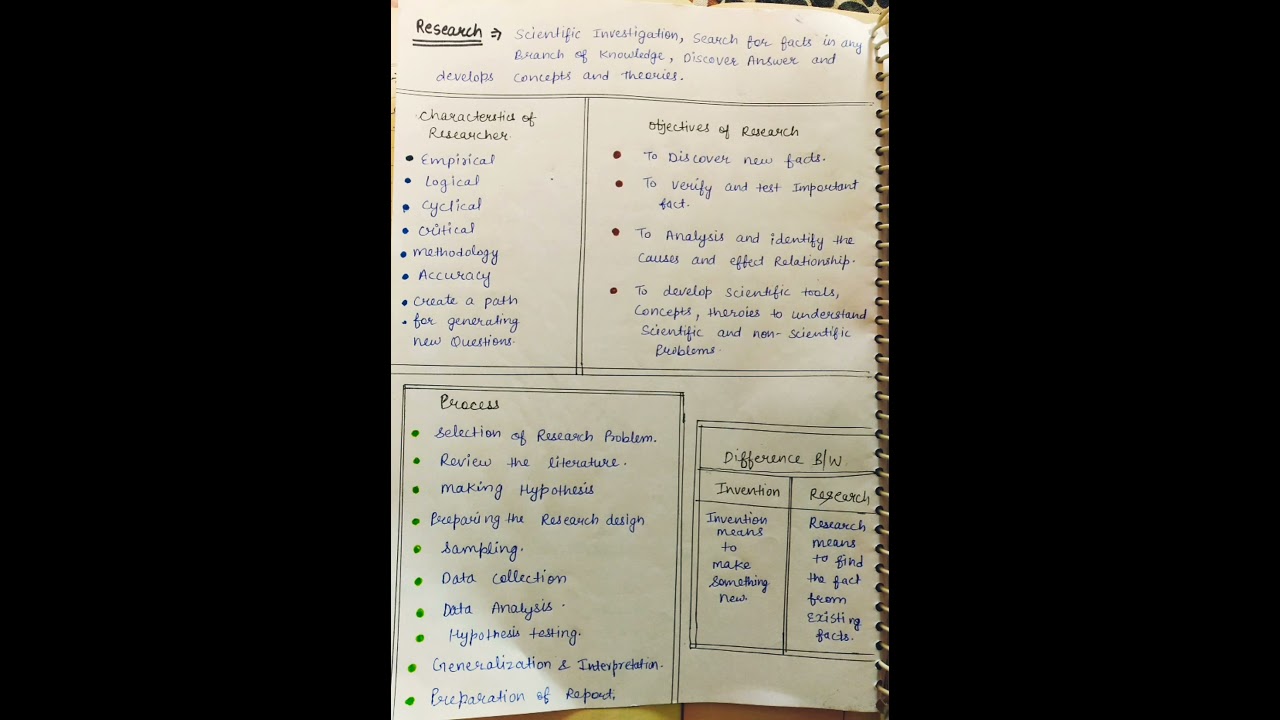 Research ⇒ Scientific Investigation, Search for facts in any
Branch of Knowledge, Discover Answer and
develops Concepts and theories.
Characterstics of
Researcher.
• Empirical
• Logical
• Cyclical
• Critical
• methodology
• Accuracy
• Create a path
• for generating
new Questions.
Objectives of Research
• To Discover new facts.
• To verify and test Important
fact.
• To Analysis and identify the
Causes and effect Relationship.
• To develop Scientific tools,
Concepts, theroies to understand
Scientific and non-Scientific
Problems.
Process
• Selection of Research Problem.
• Review the literature.
• making Hypothesis
• Preparing the Research design
• Sampling.
• Data Collection
• Data Analysis.
• Hypothesis testing.
• Generalization & Interpretation.
• Preparation of Report.
Difference B/W
Invention
Invention
means
to
make
Something
new.
Research
Research
means
to find
the fact
from
Existing
facts.